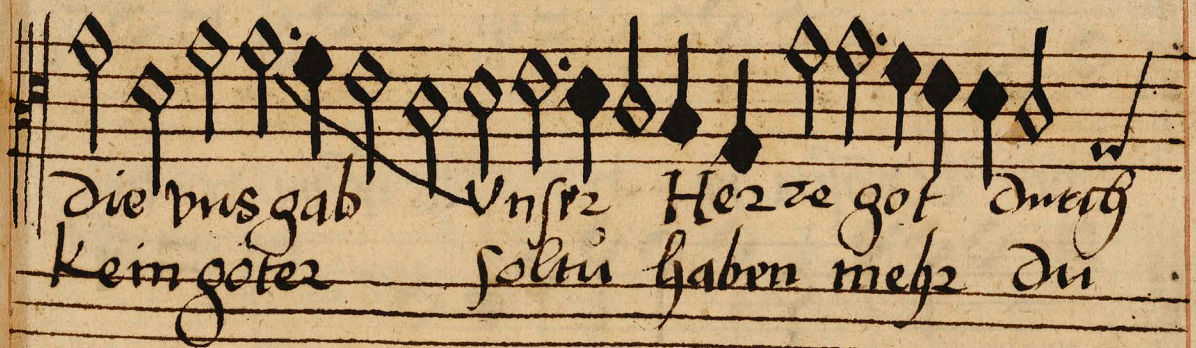 die vns gab Vnser Herre got durch
kein göter soltu haben mehr Du